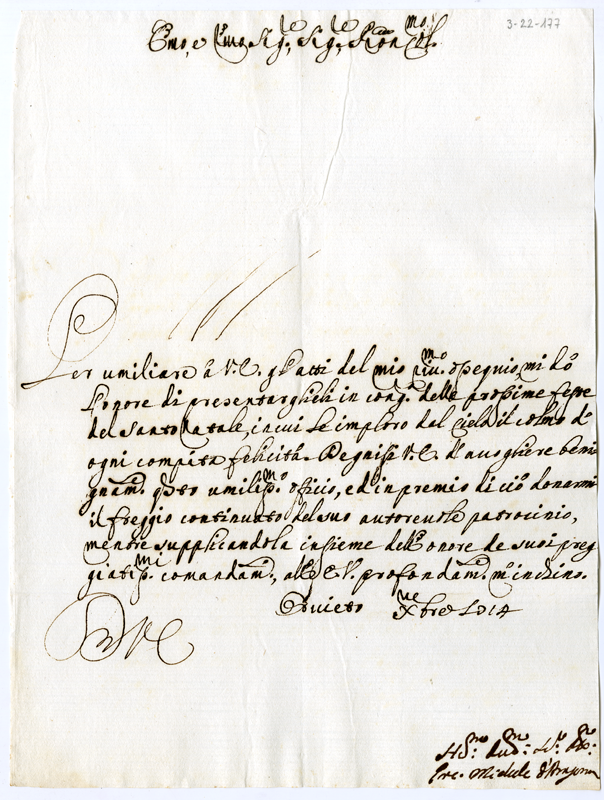 3-22-177
Emo, e Rmo Sig.re Sig.re
Per umiliare à V.E. gl'atti del mio riv.mo ossequio mi dò
l'onore di presentarglieli in cong.e delle prossime feste
del Santo Natale, in cui Le imploro dal Cielo il colmo d'
ogni compita felicità. Degnisi V.E. d'accogliere beni
gnam.e questo umiliss.mo officio, ed in premio di ciò donarmi
il freggio continuato del suo autorevole patrocinio,
mentre supplicandola insieme dell'onore de suoi preg
giatiss.mi comandam.ti, all'E.V. profondam.e m'inchino.
Orvieto Xbre
D V E